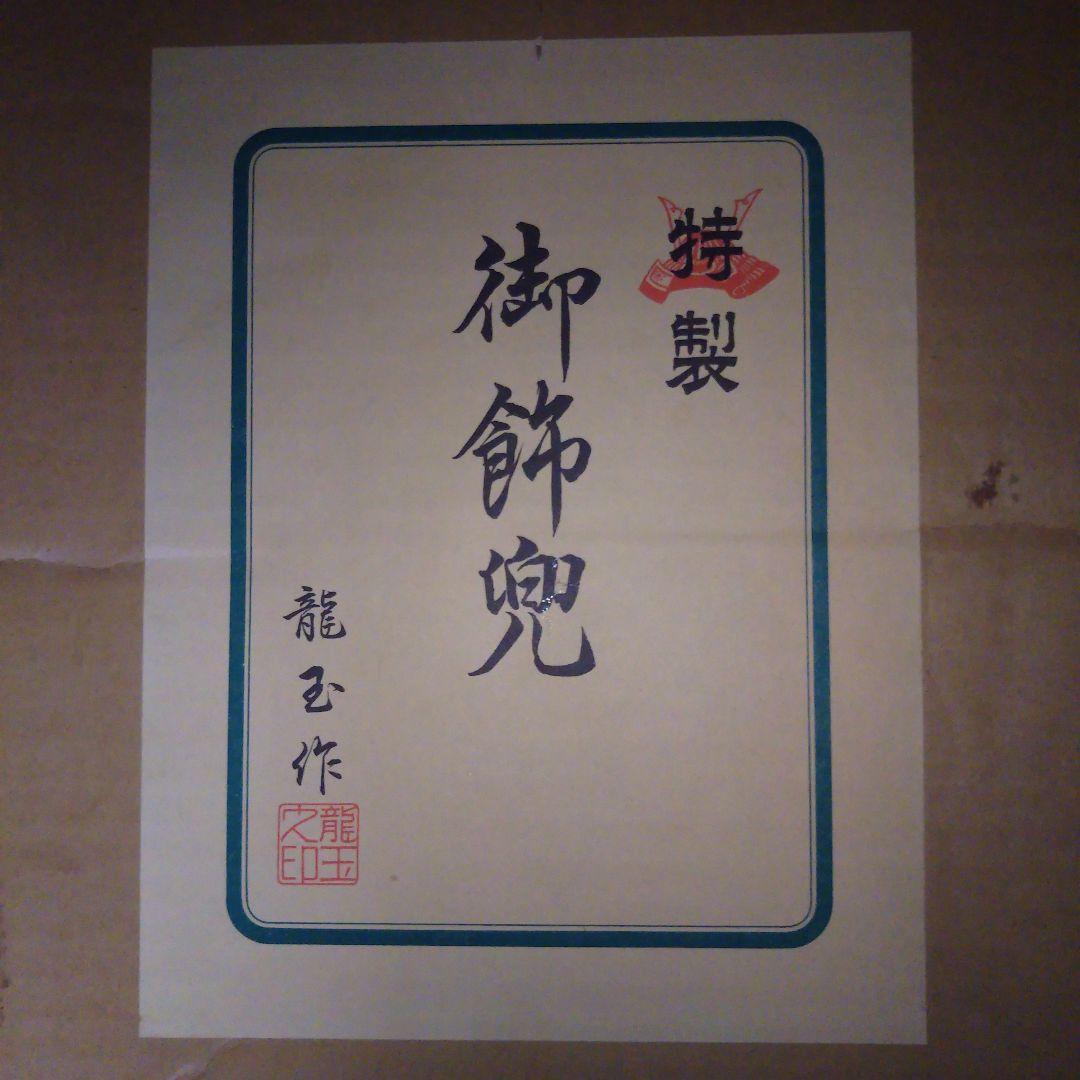 特製
御飾兜
龍玉作
龍玉之印